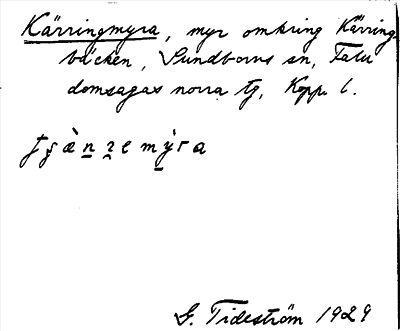 Kärringmyra, myr omkring Kärring-
bäcken, Sundborns sn, Falu
domsagas norra tg, Kopp. l.
G. Tideström 1929